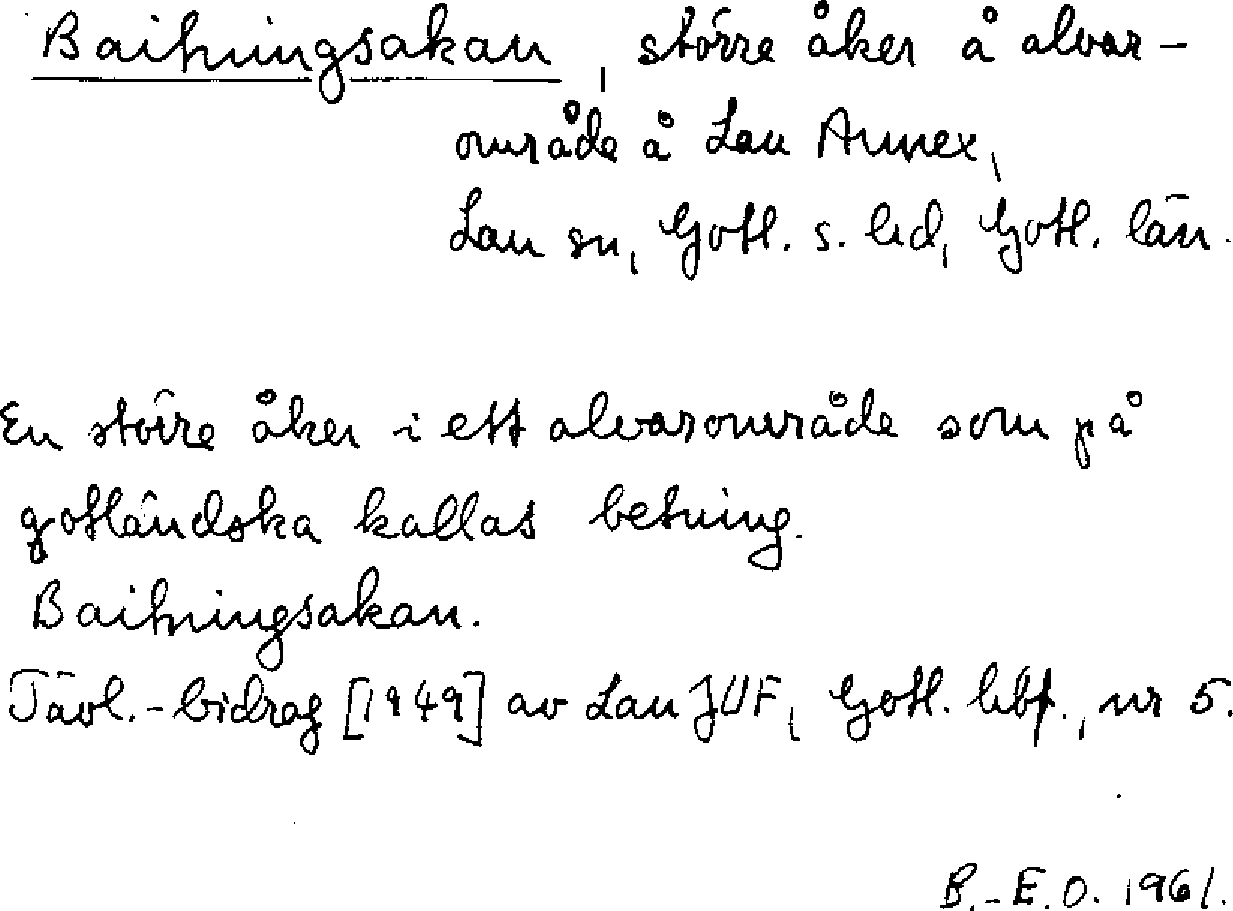 Baitningsakan, större åker å alvar-
område å Lau Annex,
Lau sn, Gotl. s. hd, Gotl. län.
En större åker i ett alvarområde som på
gotländska kallas betning.
Baitningsakan.
Tävl.-bidrag [1949] av Lau JUF, Gotl. lbf., nr 5.
B.-E.O. 1961.